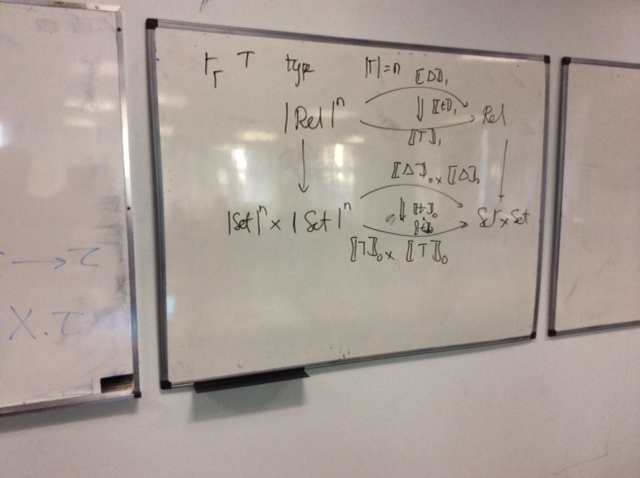 ⊢Γ T type |Γ|=n
⟦Δ⟧₁
|Rel|ⁿ ⇓ ⟦t⟧₁ Rel
⟦T⟧₁
⟦Δ⟧₀ × ⟦Δ⟧₀
|Set|ⁿ × |Set|ⁿ ⇓ ⟦t⟧₀ Set × Set
⟦T⟧₀ × ⟦T⟧₀
τ ←
τ·X